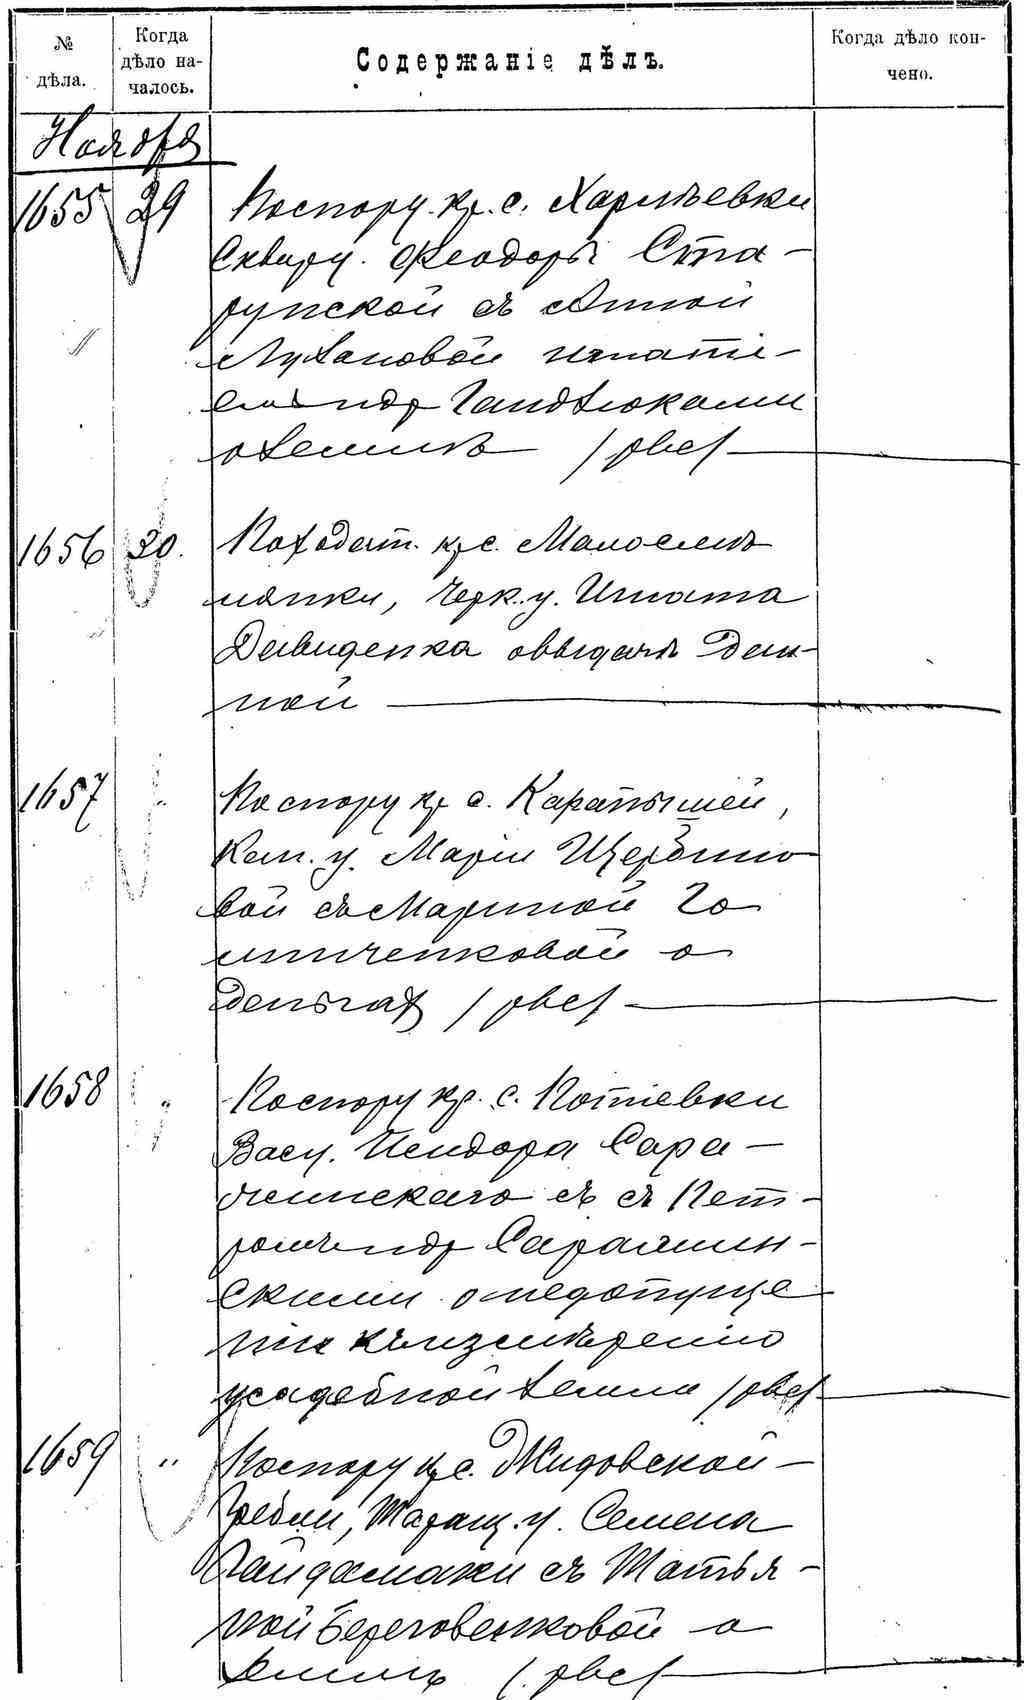 № дѣла.
Когда дѣло началось.
Содержаніе дѣлъ.
Когда дѣло кончено.
Ноября
1655 29 По спору кр. с. Харлѣевки
Сквир. у. Феодоры Ста-
рунской съ Анной
Лукановой Игнаті-
емъ и др Гандзюками
о землѣ /рвс/
1656 30. По ходат. кр. с. Малосмѣ
лянки, Черк. у. Игната
Давиденка о выдачѣ дан-
ной
1657 " По спору кр с. Карапышей,
Кан. у. Маріи Щербино
вой съ Мариной Го
ниченковой о
деньгах /рвс/
1658 " По спору кр. с. Потіевки
Васи. Исидора Сара-
жинскаго съ съ Пет-
ромъ и др Саражин-
скими о недопуще
ніи къ измѣренію
усадебной земли /рвс/
1659 " По спору кр с. Жидовской-
Гребли, Таращ. у. Семена
Гайдамаки съ Татья-
ной Береговенковой о
землѣ /рвс/